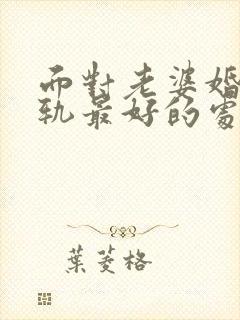 而對老婆婚
軌最好的處
葉菱格